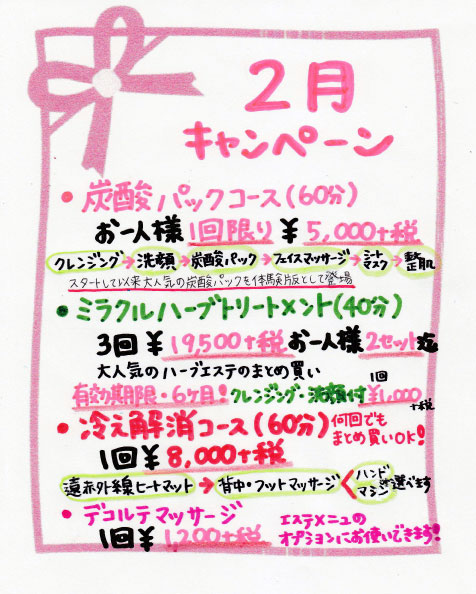 2月
キャンペーン
• 炭酸パックコース(60分)
お一人様1回限り ¥5,000+税
クレンジング→洗顔→炭酸パック→フェイスマッサージ→シートマスク→整肌
スタートして以来大人気の炭酸パックを体験版として登場
• ミラクルハーブトリートメント(40分)
3回¥19,500+税 お一人様2セット迄
大人気のハーブエステのまとめ買い
有効期限・6ヶ月! クレンジング・洗顔付 1回¥1,000+税
• 冷え解消コース(60分) 何回でもまとめ買いOK!
1回¥8,000+税
遠赤外線ヒートマット→背中・フットマッサージ<ハンド or マシン 選べます
• デコルテマッサージ
1回¥1,200+税 エステメニューのオプションにお使いできます!